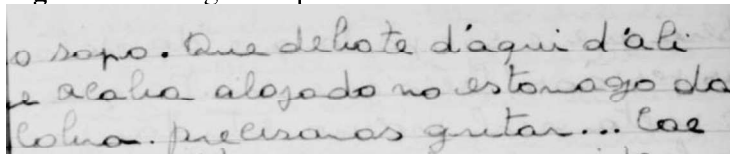 o sapo. Que debate d'aqui d'ali
e acaba alojado no estomago da
Cobra. precisamos gritar... Coe